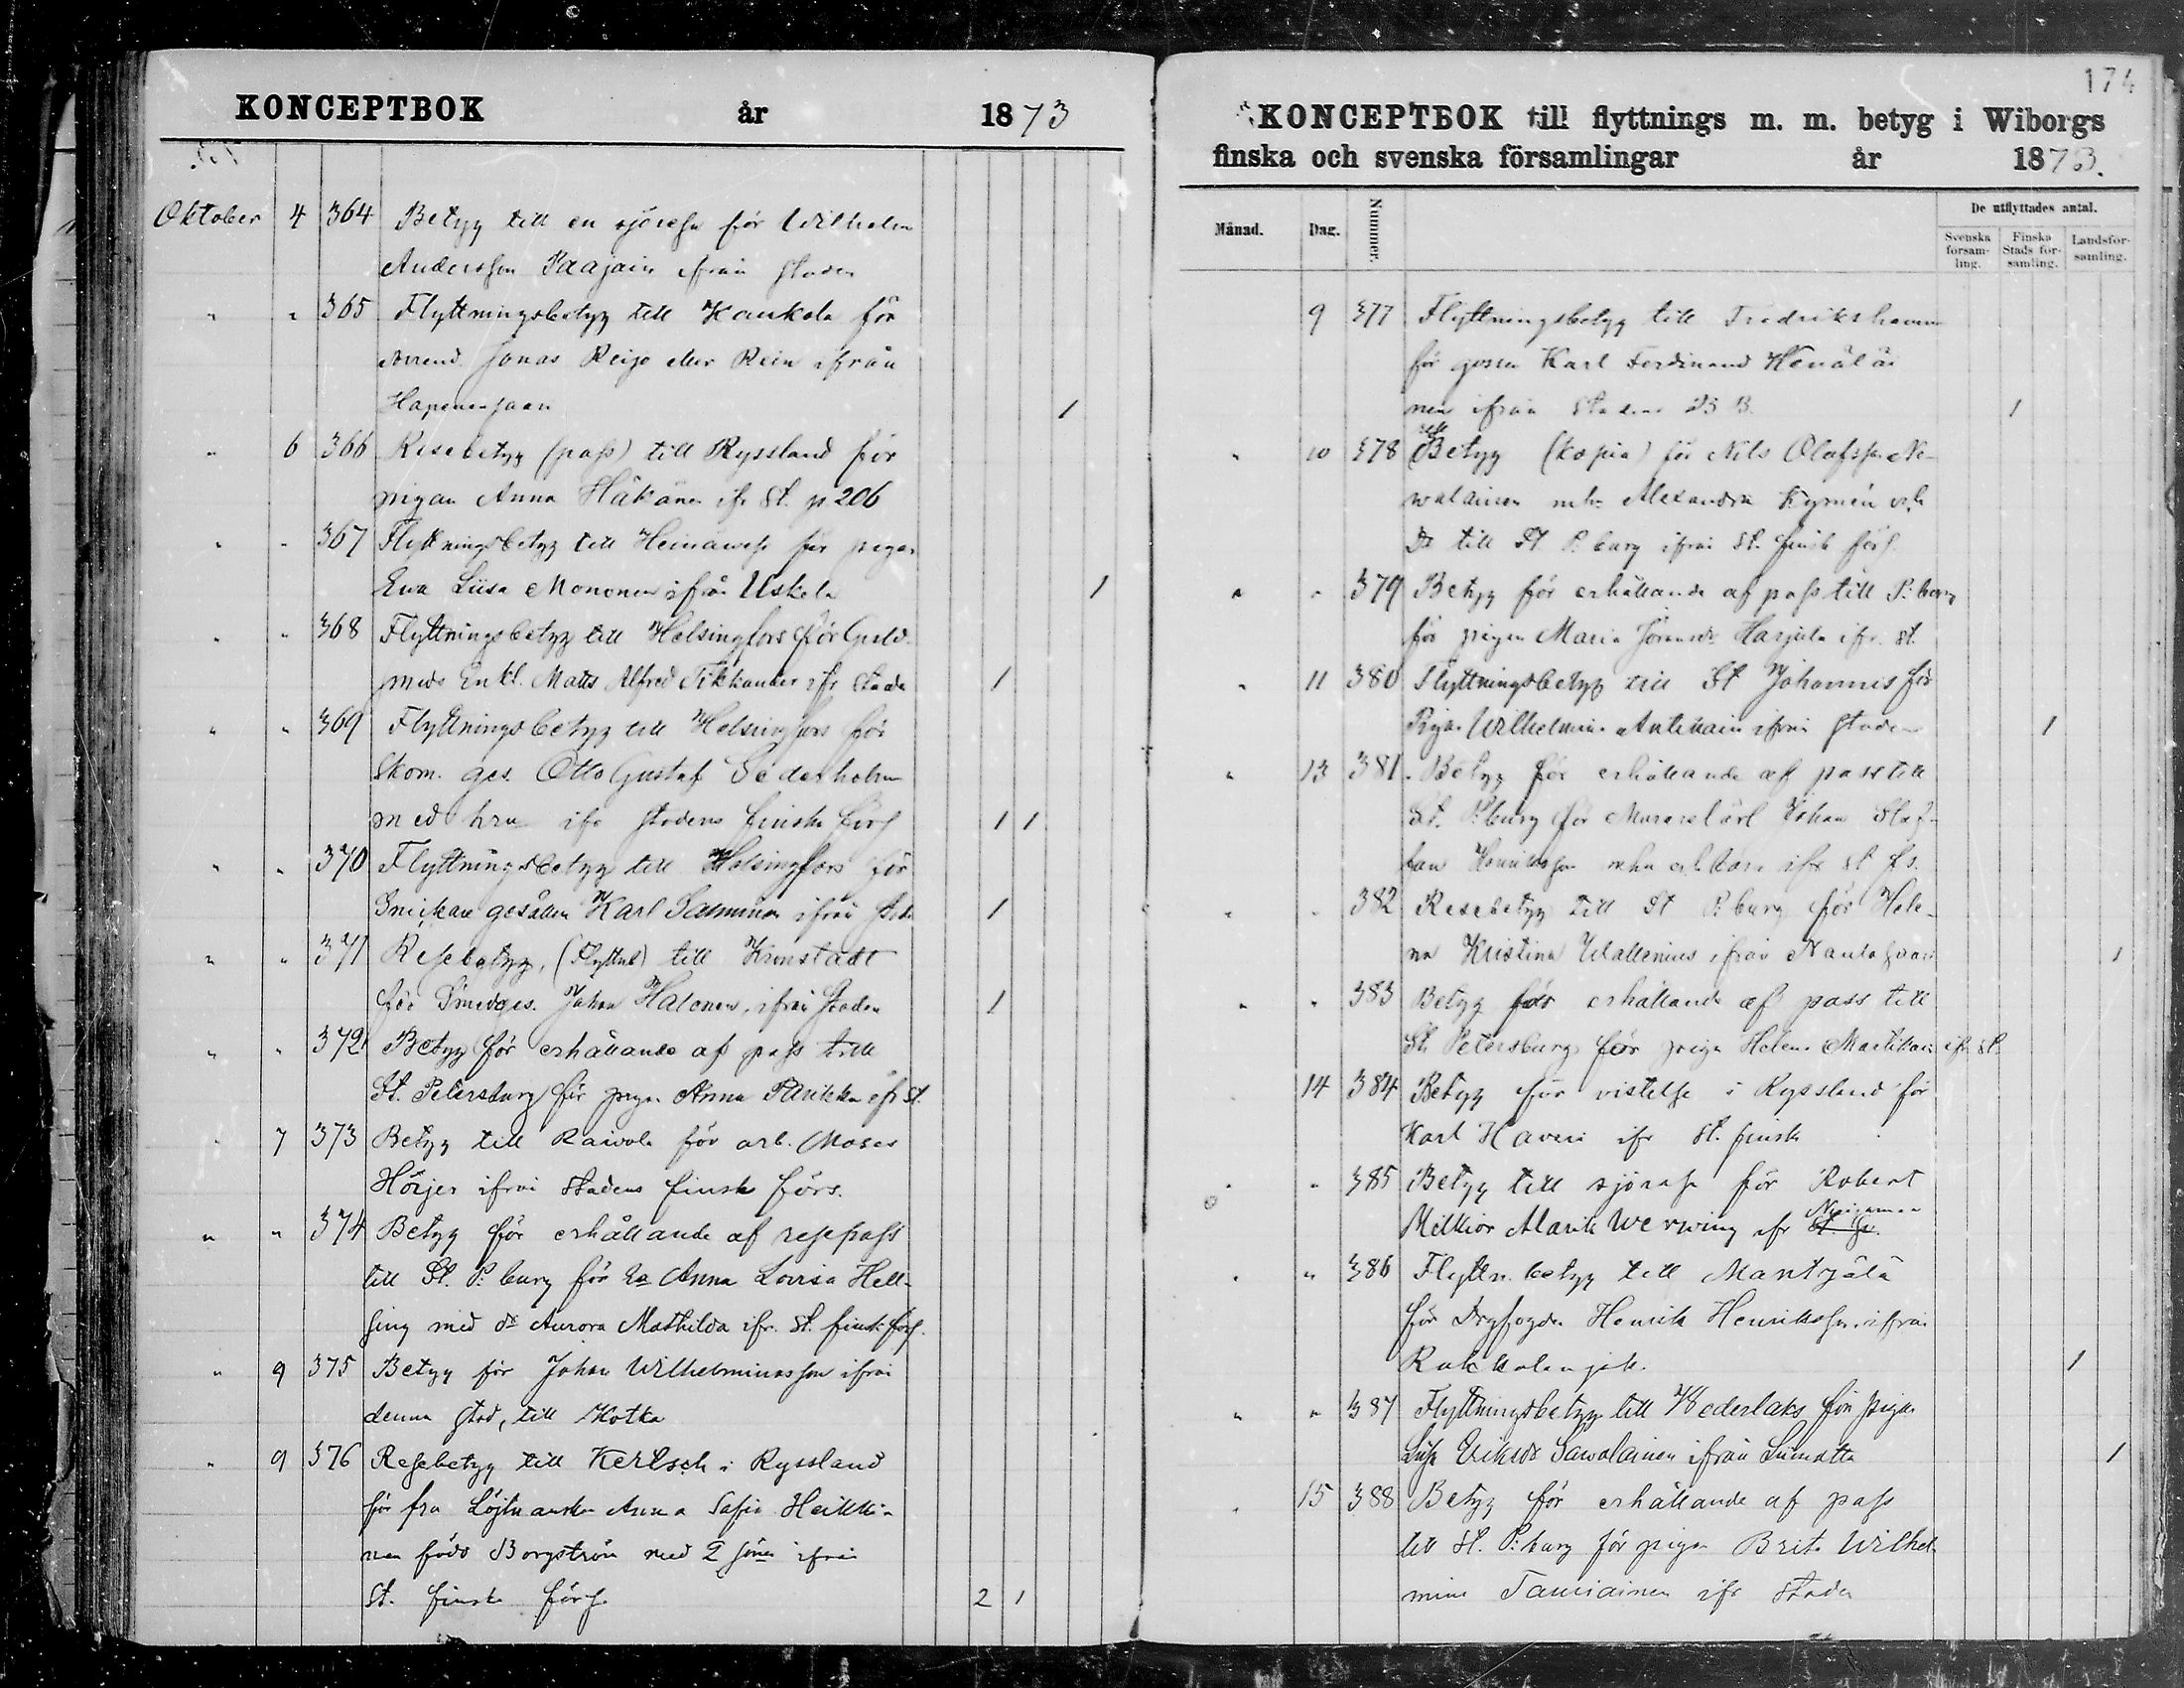 KONCEPTBOK år 1873
Oktober 4 364 Betyg till en sjöresa för Wilhelm
Andersson Paajain ifrån staden
" " 365 Flyttningsbetyg till Kaukola för
Jonas Reijo eller Rein ifrån
Hapenensaari 1
" 6 366 Resebetyg (pass) till Ryssland för
pigan Anna Häkänen ifr St. p 206
" " 367 Flyttningsbetyg till Heinäwesi för pigan
Ewa Liisa Mononen ifrån Uskela 1
" " 368 Flyttningsbetyg till Helsingfors för Guld-
smeds Enkl. Matts Alfred Tikkander ifr Staden 1
" " 369 Flyttningsbetyg till Helsingfors för
Skom. ges. Otto Gustaf Sederholm
med hru ifr stadens finska förs 1 1
" " 370 Flyttningsbetyg till Helsingfors för
Snickare gesällen Karl Salminen ifrån staden 1
" " 371 Resebetyg, (Flyttn) till Kronstadt
för Smedges. Johan Halonen, ifrån Staden 1
" " 372 Betyg för erhållande af pass till
St. Petersburg för pigan Anna Parikka ifr St.
" 7 373 Betyg till Raivola för arb. Moses
Höijer ifrån Stadens finska förs.
" " 374 Betyg för erhållande af resepass
till St. P:burg för Ea Anna Lovisa Hell-
sing med dr Aurora Mathilda ifr. St. finsk förs.
" 9 375 Betyg för Johan Wilhelminasson ifrån
denna stad, till Kotka
" 9 376 Resebetyg till Kertsch i Ryssland
för fru Löjtnantskan Anna Sofia Heikki-
nen född Borgström med 2 söner ifrån
St. finska förs. 2 1
174
KONCEPTBOK till flyttnings m. m. betyg i Wiborgs
finska och svenska församlingar år 1873.
Månad. Dag. Nummer. De utflyttades antal.
Svenska församling. Finska Stads församling. Landsförsamling.
9 377 Flyttningsbetyg till Fredrikshamn
för gossen Karl Ferdinand Henäläi
nen ifrån Stadens 1
" 10 378 Betyg (kopia) för Nils Olafsson Ne-
walainen mhu Alexandra Kymén och
dr till St P:burg ifrån St. finsk förs.
" " 379 Betyg för erhållande af pass till P:burg
för pigan Maria Göransdr Harjula ifr. St.
" 11 380 Flyttningsbetyg till St Johannis för
Pigan Wilhelmina Antikain ifrån Staden 1
" 13 381. Betyg för erhållande af pass till
St. P:burg för Johan Staf-
fan Henriksson mhu och ifr St fs.
" " 382 Resebetyg till St P:burg för Hele-
na Kristina Wallenius ifrån Nautasaari 1
" " 383 Betyg för erhållande af pass till
St. Petersburg för pigan Helena Martikain ifr St.
" 14 384 Betyg för vistelse i Ryssland för
Karl Haveri ifr St. finsk
" " 385 Betyg till sjöresa för Robert
Melkior Alarik Werving ifr
" " 386 Flyttn. betyg till Mäntsälä
för Dryfogden Henrik Henriksson ifrån
Rakkolanjok. 1
" " 387 Flyttningsbetyg till Wederlaks för pigan
Liisa Eriksdr Sawolainen ifrån Liimatta 1
" 15 388 Betyg för erhållande af pass
till St. P:burg för pigan Brita Wilhel
mina Tauriainen ifr Staden